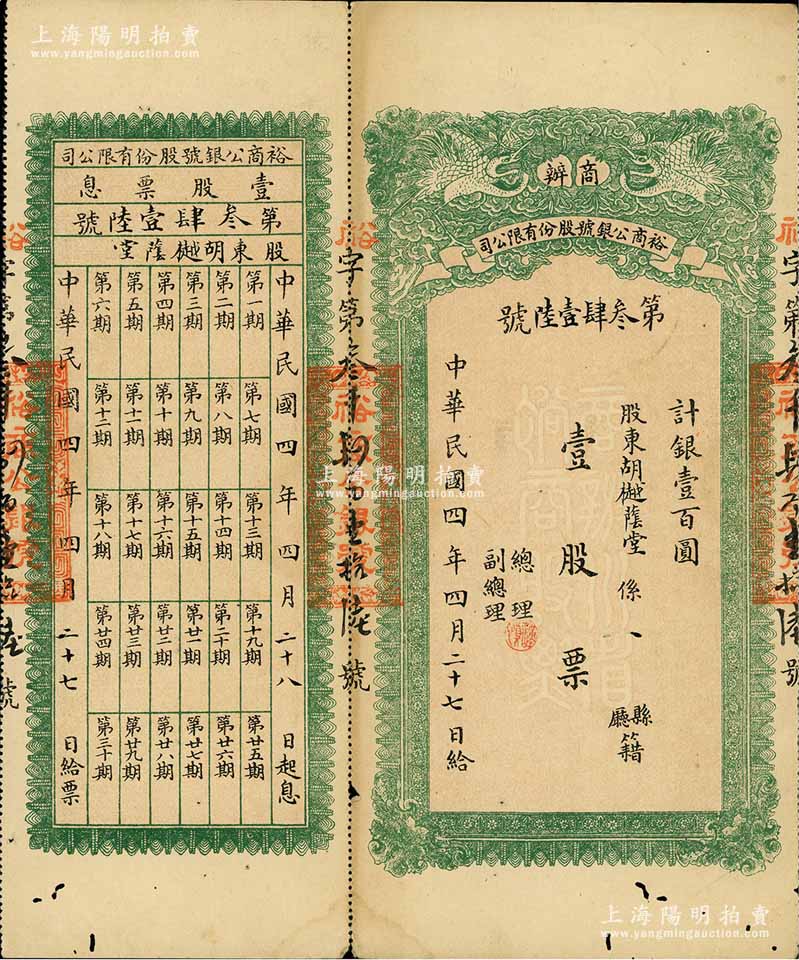 上海陽明拍賣
www.yangmingauction.com
商辦
裕商公銀號股份有限公司
第叁肆壹陸號
計銀壹百圓
股東胡樾蔭堂係
縣
廳
籍
壹股票
總理
副總理
中華民國四年四月二十七日給
字第叁千肆百壹拾陸號
裕商公銀號股份有限公司
壹股票息
第叁肆壹陸號
股東胡樾蔭堂
中華民國四年四月二十八日起息
第一期 第七期 第十三期 第十九期 第廿五期
第二期 第八期 第十四期 第二十期 第廿六期
第三期 第九期 第十五期 第廿一期 第廿七期
第四期 第十期 第十六期 第廿二期 第廿八期
第五期 第十一期 第十七期 第廿三期 第廿九期
第六期 第十二期 第十八期 第廿四期 第三十期
中華民國四年四月二十七日給票
上海陽明拍賣
www.yangmingauction.com
上海陽明拍賣
www.yangmingauction.com